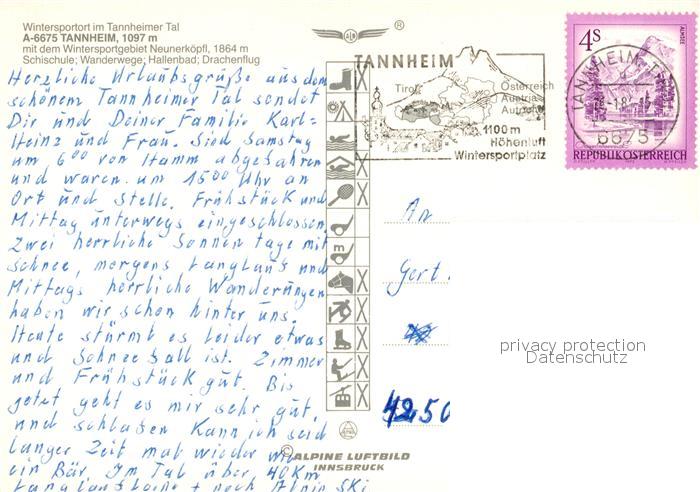 Wintersportort im Tannheimer Tal
A-6675 TANNHEIM, 1097 m
mit dem Wintersportgebiet Neunerköpfl, 1864 m
Schischule; Wanderwege; Hallenbad; Drachenflug
Herzliche Urlaubsgrüße aus dem
schönem Tannheimer Tal sendet
Dir und Deiner Familie Karl=
Heinz und Frau. Sind Samstag
um 6⁰⁰ von Hamm abgefahren
und waren um 15⁰⁰ Uhr an
Ort und Stelle. Frühstück und
Mittag unterwegs eingeschlossen.
Zwei herrliche Sonnen tage mit
Schnee, morgens Langlauf und
Mittags herrliche Wanderungen
haben wir schon hinter uns.
Heute stürmt es leider etwas
und Schneefall ist. Zimmer
und Frühstück gut. Bis
jetzt geht es mir sehr gut,
und schlafen kann ich seid
langer Zeit mal wieder wie
ein Bär. Im Tal über 40 Km
Langlaufloipe + noch Alpin Ski
ALPINE LUFTBILD
INNSBRUCK
TANNHEIM
Tirol
Österreich
Austria
1100 m
Höhenluft
Wintersportplatz
4 S
ALMSEE
TANNHEIM, TI
6675
REPUBLIK ÖSTERREICH
An
Gert.
4250
privacy protection
Datenschutz